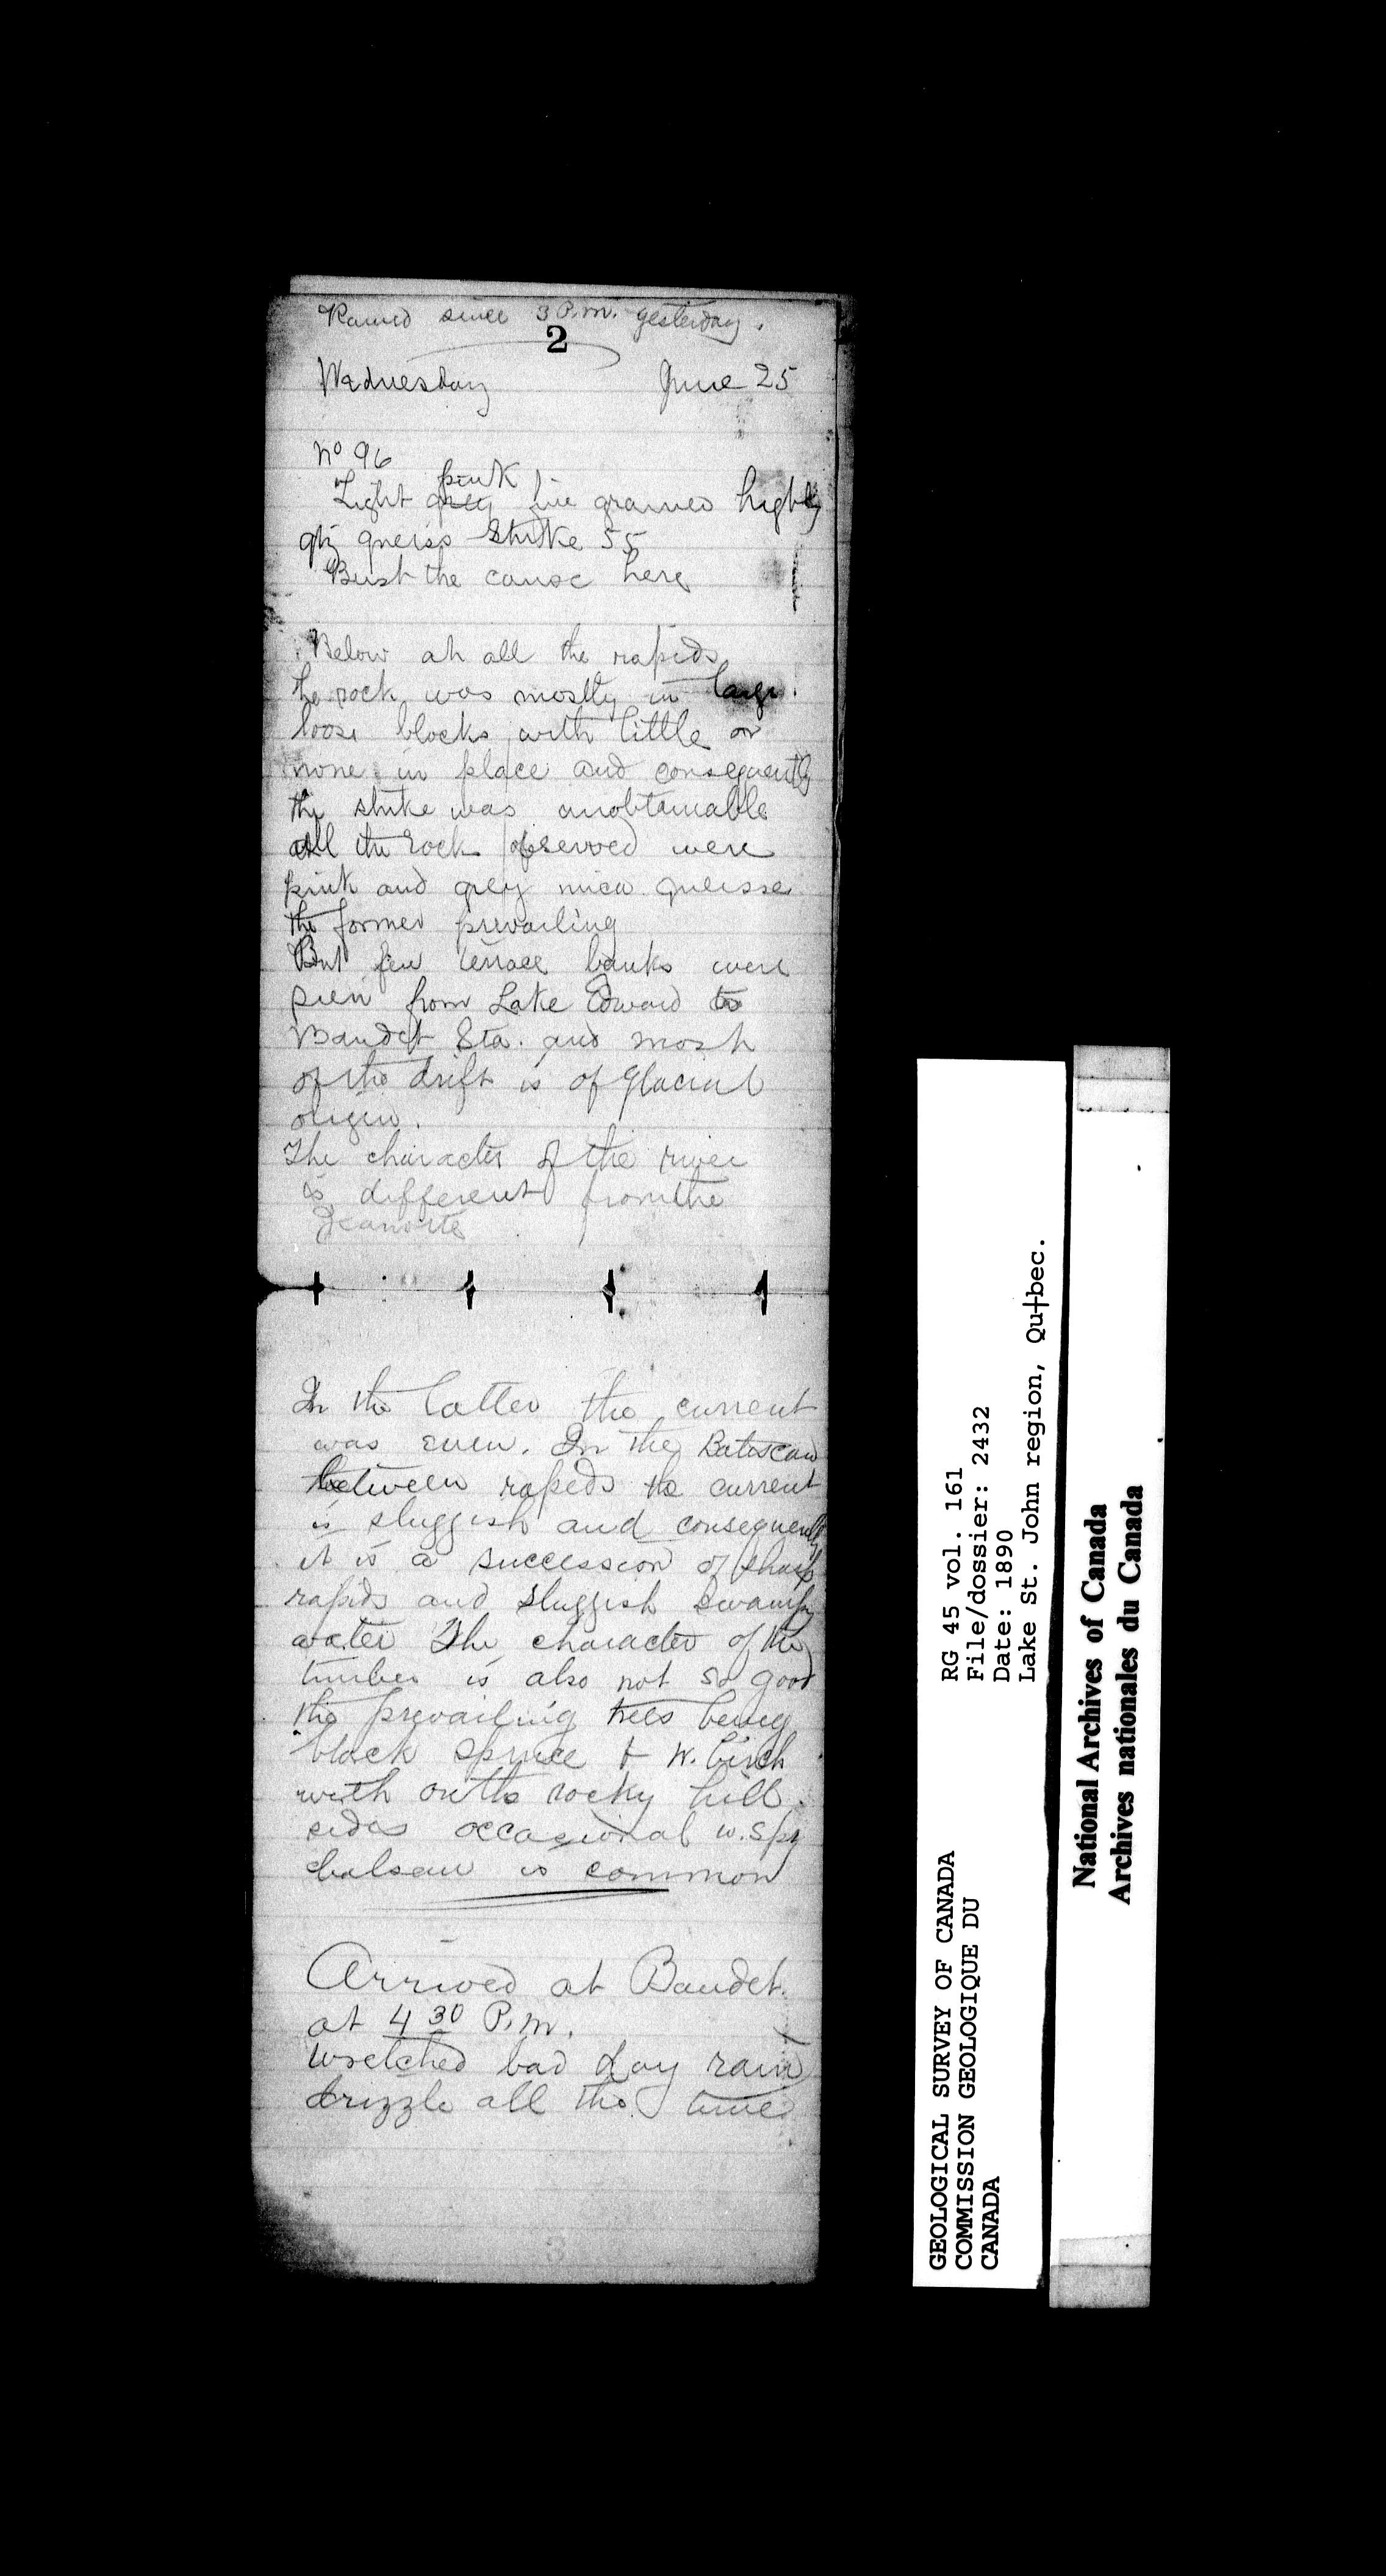 Rained since 3 P.m. yesterday.
2
Wednesday June 25
No 96
pink
Light grey fine grained highly
qtz gneiss Strike 55
Bust the canoe here
Below at all the rapids
the rock was mostly in large
loose blocks with little or
none in place and consequently
the strike was unobtainable
all the rock observed were
pink and grey mica gneisse
the former prevailing
But few terrace banks were
seen from Lake Edward to
Baudet Sta. and most
of the drift is of glacial
origin.
The character of the river
is different from the
Jeanotte
In the latter the current
was even. In the Batiscan
between rapids the current
is sluggish and consequently
it is a succession of sharp
rapids and sluggish swampy
water The character of the
timber is also not so good
the prevailing trees being
black spruce & w. birch
with on the rocky hill
sides occasional w. sp
balsam is common
Arrived at Baudet.
at 4 30 P.m.
Wretched bad day rain
drizzle all the time
GEOLOGICAL SURVEY OF CANADA
COMMISSION GEOLOGIQUE DU
CANADA
RG 45 vol. 161
File/dossier: 2432
Date: 1890
Lake St. John region, Qu†bec.
National Archives of Canada
Archives nationales du Canada